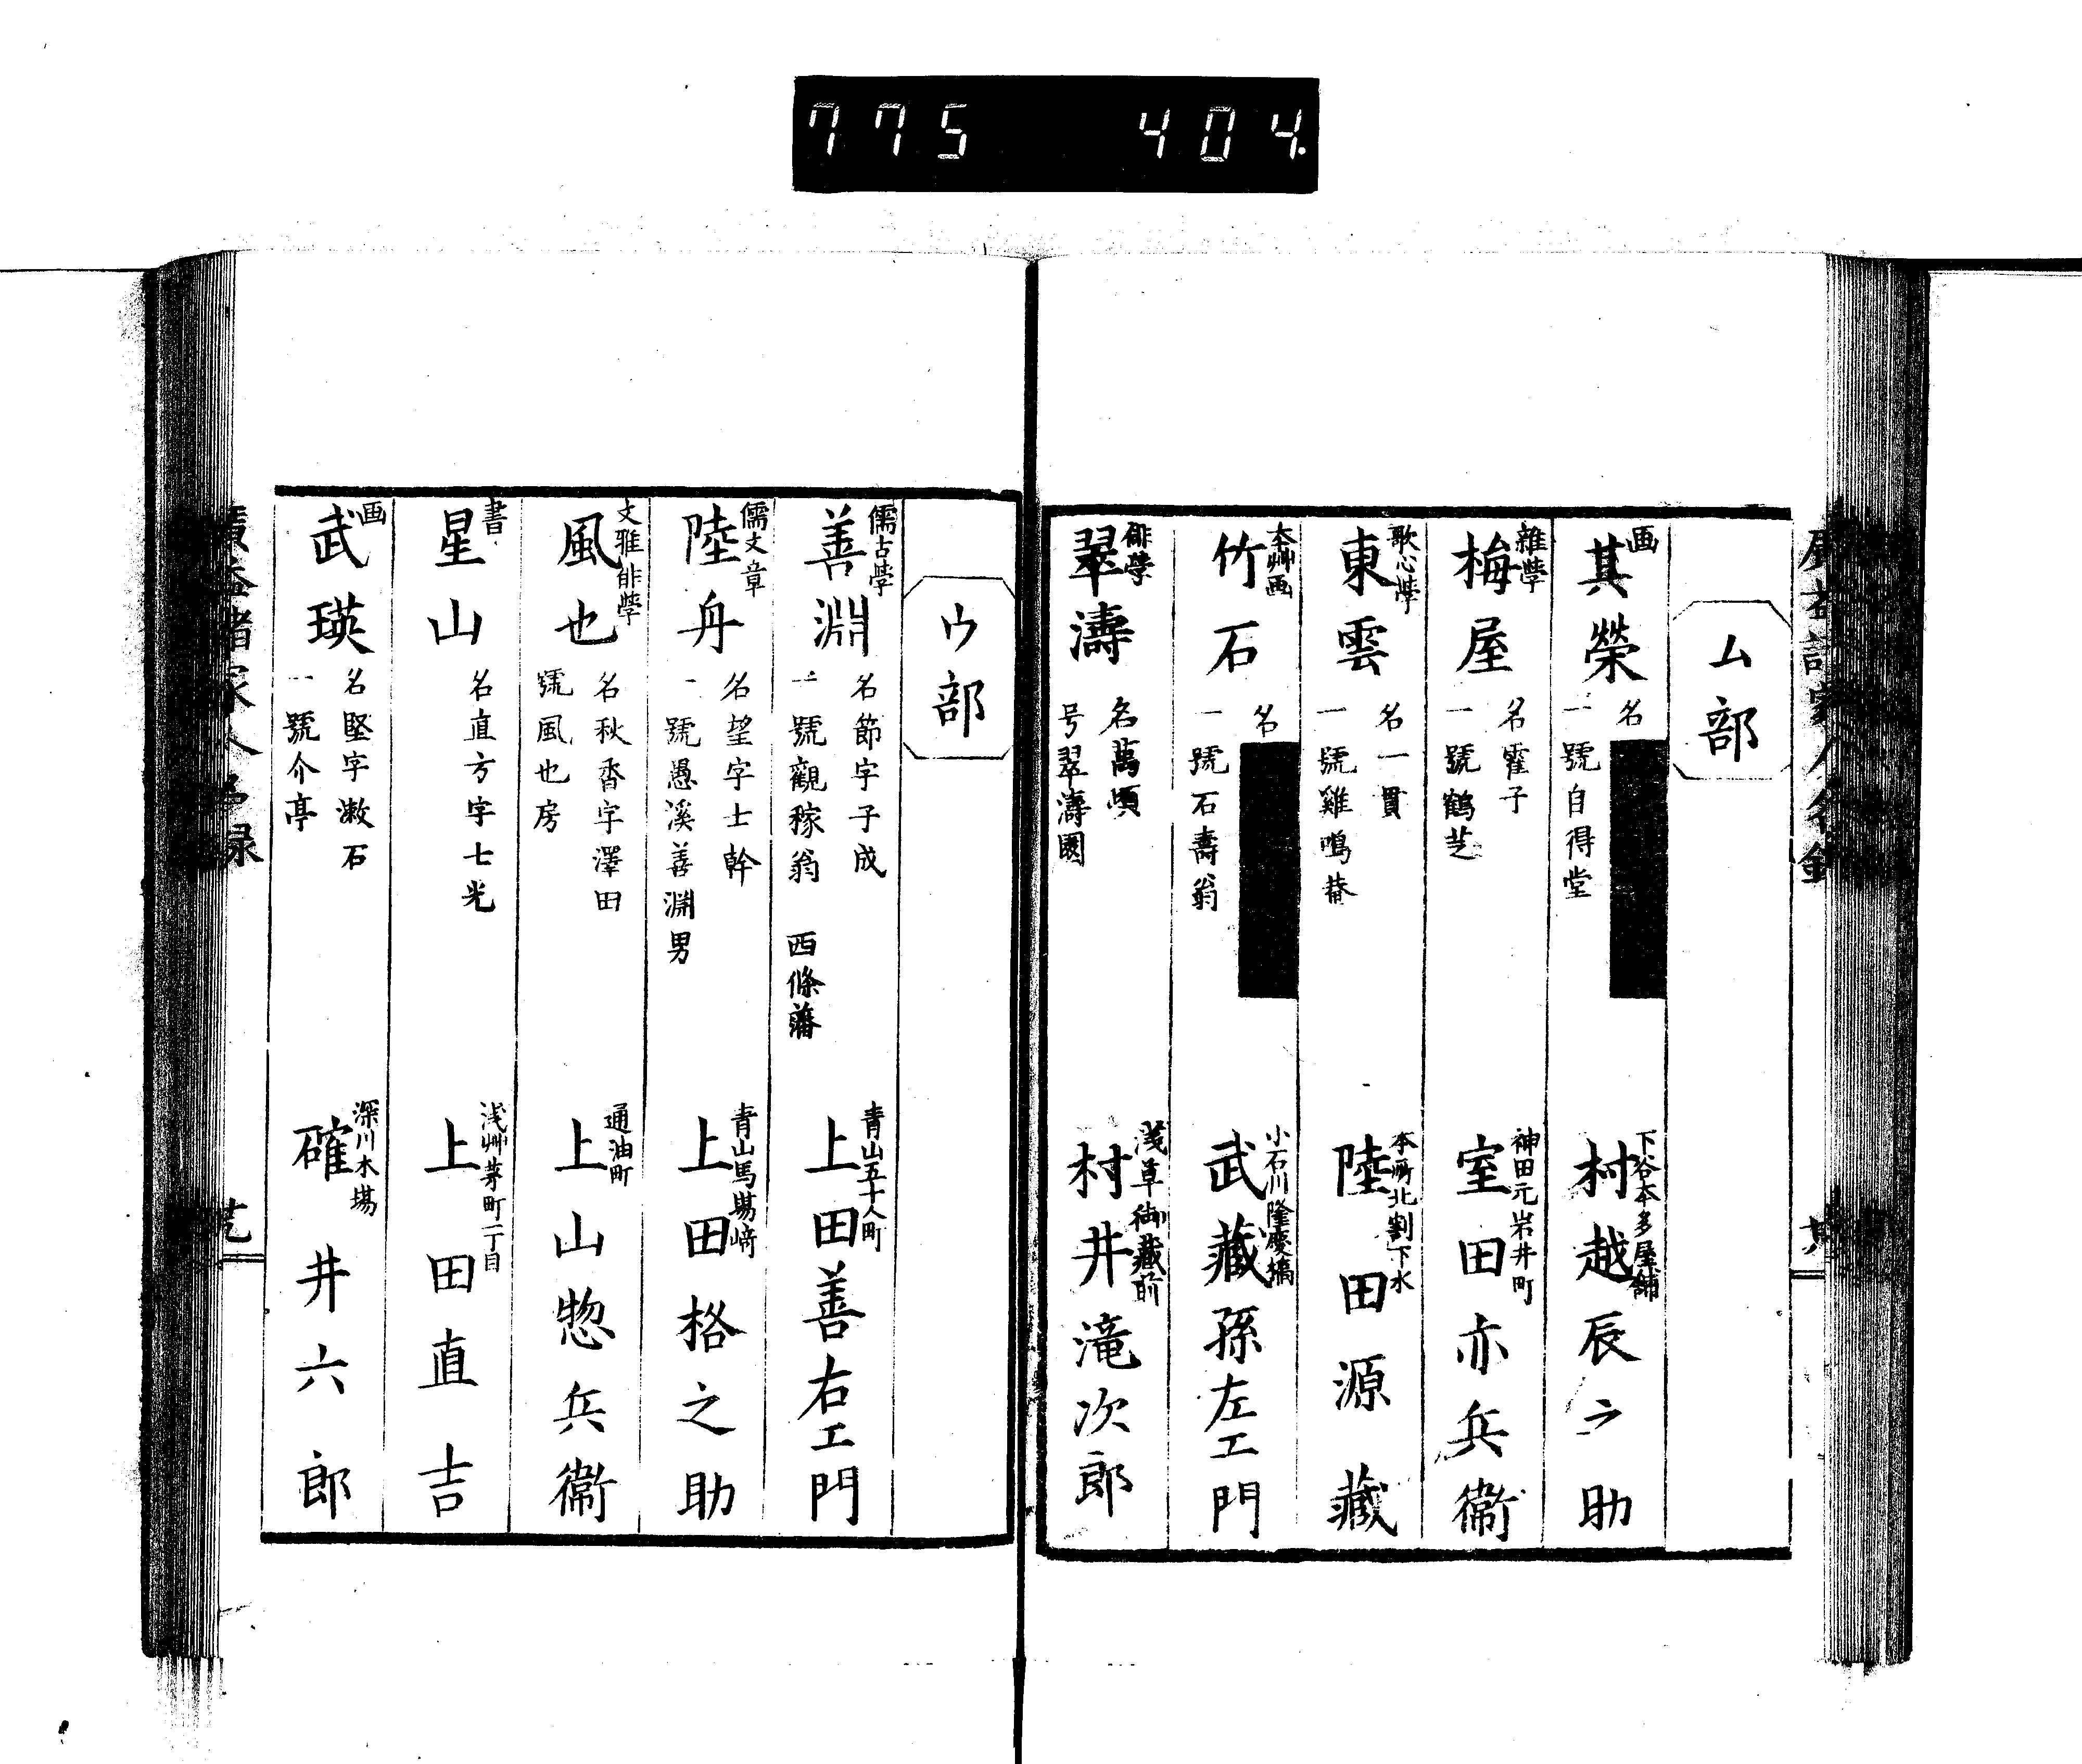 775 404.
ム部
画
其榮
名
一號自得堂
下谷本多屋鋪
村越辰之助
雜學
梅屋
名霍子
一號鶴芝
神田元岩井町
室田亦兵衞
歌心學
東雲
名一貫
一號雞鳴菴
本所北割下水
陸田源藏
本艸画
竹石
名
一號石壽翁
小石川隆慶橋
武藏孫左エ門
俳學
翠濤
名萬頃
号翠濤園
浅草御藏前
村井滝次郎
ウ部
儒古學
善淵
名節字子成
一號觀稼翁 西條藩
青山五十人町
上田善右エ門
儒文章
陸舟
名望字士幹
一號愚溪善淵男
青山馬場﨑
上田格之助
文雅俳學
風也
名秋香字澤田
號風也房
通油町
上山惣兵衞
書
星山
名直方字七光
浅艸茅町二丁目
上田直吉
画
武瑛
名堅字漱石
一號介亭
深川木場
碓井六郎